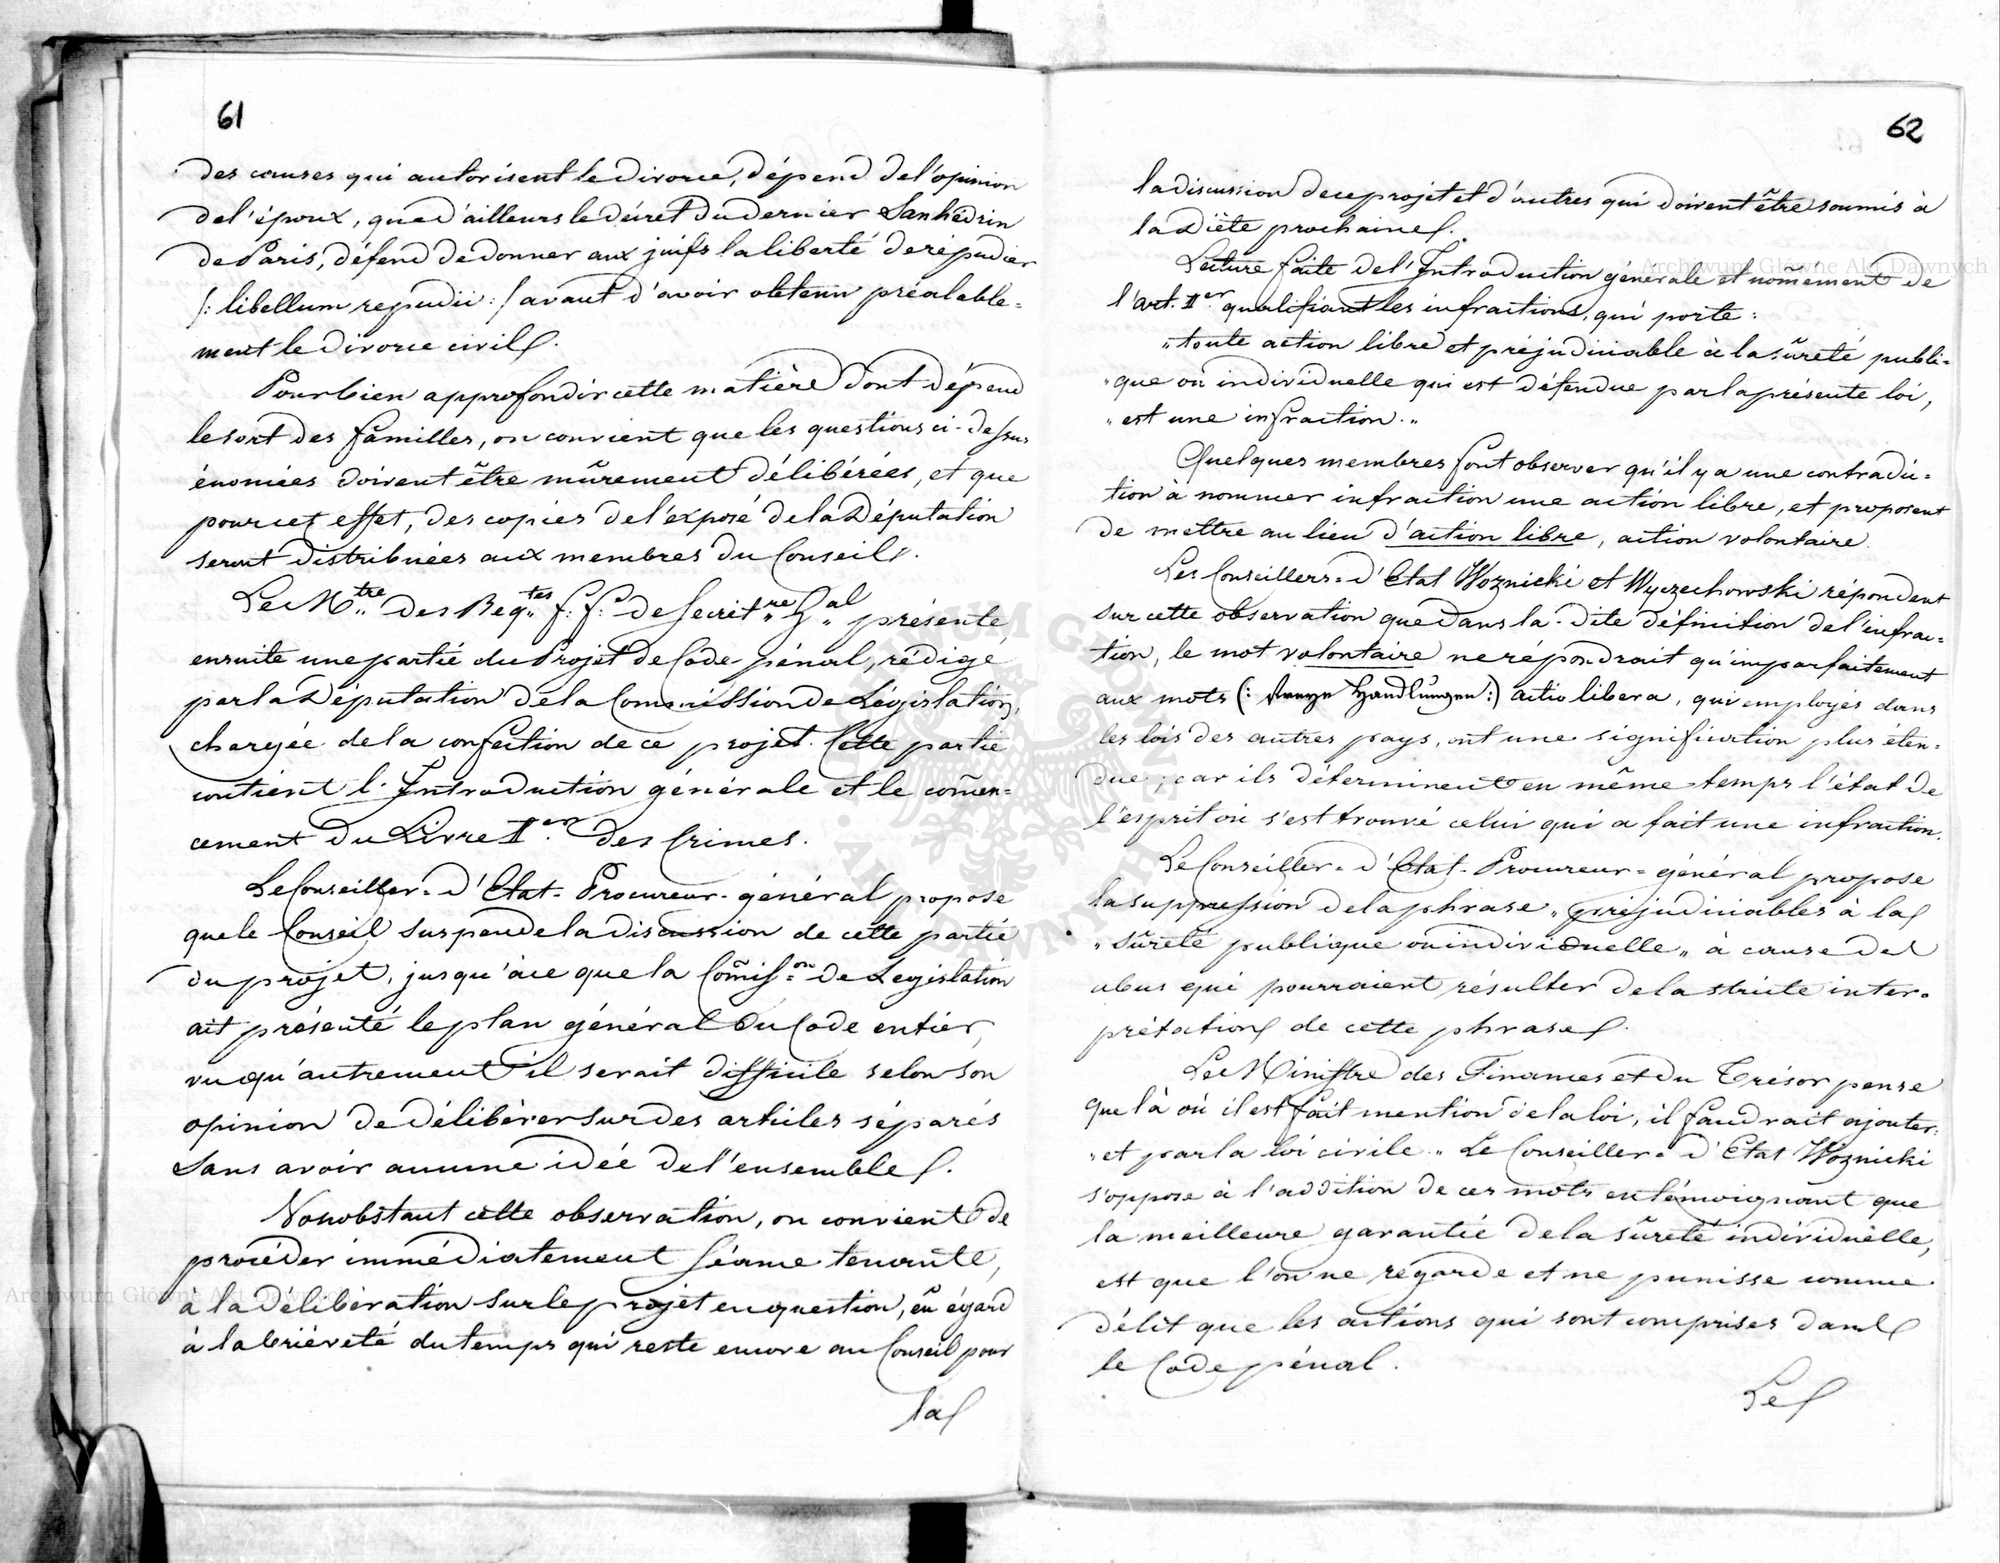 61
des causes qui autorisent le divorce, dépend de l'opinion
de l'époux, que d'ailleurs le décret du dernier Sanhédrin
de Paris, défend de donner aux juifs la liberté de répudier
/: libellum repudii :/ avant d'avoir obtenu préalable-
ment le divorce civil.
Pour bien approfondir cette matière dont dépend
le sort des familles, on convient que les questions ci-dessus
énoncées doivent être mûrement délibérées, et que
pour cet effet, des copies de l'exposé de la Députation
seront distribuées aux membres du Conseil.
Le Mtre des Reqtes f: f: de Secritre Gal présente
ensuite une partie du Projet de Code pénal, rédigé
par la Députation de la Commission de Législation,
chargée de la confection de ce projet. Cette partie
contient l'Introduction générale et le com̃en-
cement du Livre Ier des Crimes.
Le Conseiller-d'Etat-Procureur-général propose
que le Conseil suspende la discussion de cette partie
du projet, jusqu'à ce que la Com̃ison de Législation
ait présenté le plan général du Code entier,
vu qu'autrement il serait difficile selon son
opinion de délibérer sur des articles séparés
sans avoir aucune idée de l'ensemble.
Nonobstant cette observation, on convient de
procéder immédiatement séance tenante,
à la délibération sur le projet en question, eu égard
à la briéveté du temps qui reste encore au Conseil pour
la
62
la discussion de ce projet et d'autres qui doivent être soumis à
la Diète prochaine.
Lecture faite de l'Introduction générale et nom̃ément de
l'art. Ier qualifiant les infractions, qui porte:
„toute action libre et préjudiciable à la sûreté publi-
„que ou individuelle qui est défendue par la présente loi,
„est une infraction.„
Quelques membres font observer qu'il y a une contradic-
tion à nommer infraction une action libre, et proposent
de mettre au lieu d'action libre, action volontaire.
Les Conseillers-d'Etat Woznicki et Wyczechowski répondent
sur cette observation que dans la-dite définition de l'infrac-
tion, le mot volontaire ne répondrait qu'imparfaitement
aux mots (: freye Handlungen :) actio libera, qui employés dans
les lois des autres pays, ont une signification plus éten-
due; car ils déterminent en même-temps l'état de
l'esprit où s'est trouvé celui qui a fait une infraction.
Le Conseiller-d'Etat-Procureur-général propose
la suppression de la phrase „préjudiciables à la
„sûreté publique ou individuelle„ à cause de
abus qui pourraient résulter de la stricte inter-
prétation de cette phrase.
Le Ministre des Finances et du Trésor pense
que là où il est fait mention de la loi, il faudrait ajouter:
„et par la loi civile„ Le Conseiller-d'Etat Woznicki
s'oppose à l'addition de ces mots en témoignant que
la meilleure garantie de la sûreté individuelle,
est que l'on ne regarde et ne punisse comme
délit que les actions qui sont comprises dans
le Code pénal.
Le
Archiwum Główne Akt Dawnych
Archiwum Główne Akt Dawnych